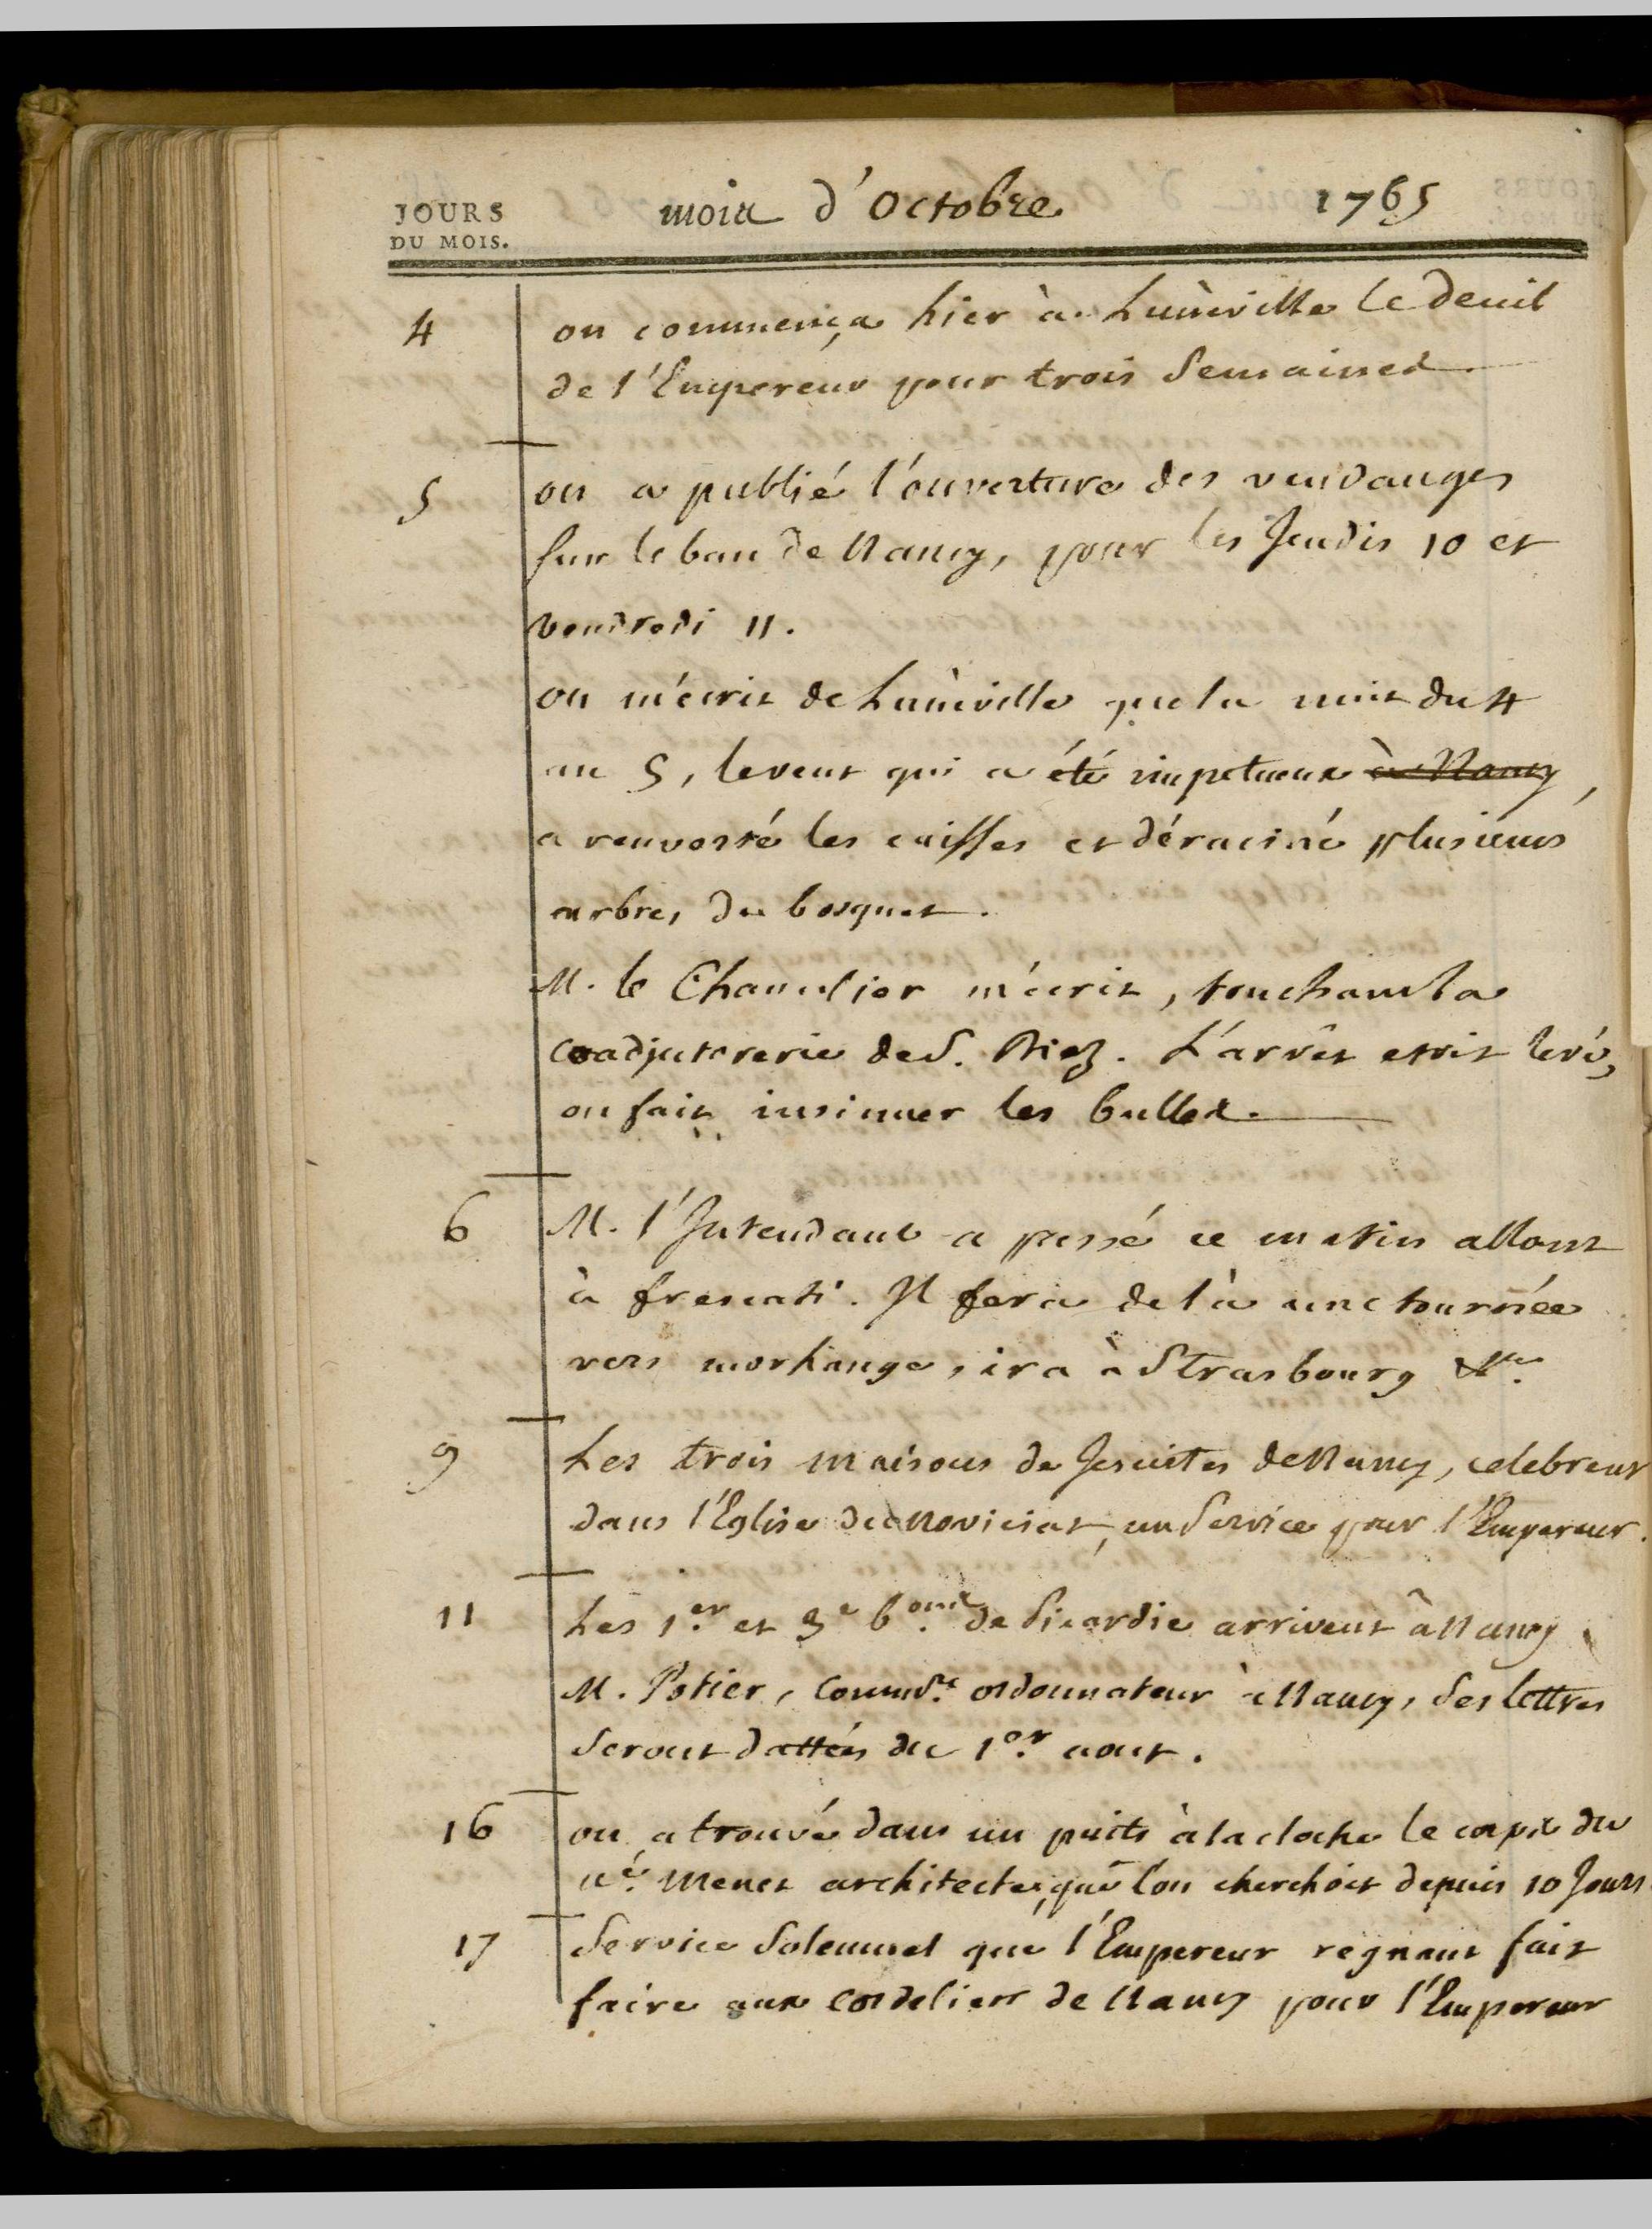 JOURS
DU MOIS.
mois d'Octobre 1765
4 on commença hier à Lunéville le deuil
de l'Empereur pour trois Semaines
5 on a publié l'ouverture des vendanges
sur le ban de Nancy, pour les Jeudis 10 et
vendredi 11.
on m'écrit de Lunéville que la nuit du 4
au 5, le vent qui a été impetueux à Nancy,
a renversé les caisses et déraciné plusieurs
arbres du bosquet.
M. le Chancelier m'écrit, touchant la
Coadjutorerie de S. Diez. L'arrêt étoit levé,
on fait insinuer les bulles.
6 M. l'Intendant a passé ce matin allant
à frescati. Il fera de là une tournée
vers morhange, ira à Strasbourg &c.
9 Les trois maisons de Jesuites de Nancy, celebrent
dans l'Eglise du Noviciat, un Service pour l'Empereur.
11 Les 1.er et 3e b.ons de Picardie arrivent à Nancy
M. Potier, Commss.re ordonnateur à Nancy, Ses lettres
Seront dattées du 1.er aout.
16 on a trouvé dans un puits à la cloche le corps du
né. Menet architecte, que l'on cherchoit depuis 10 Jours
17 Service Solennel que l'Empereur regnant fait
faire aux Cordeliers de Nancy pour l'Empereur